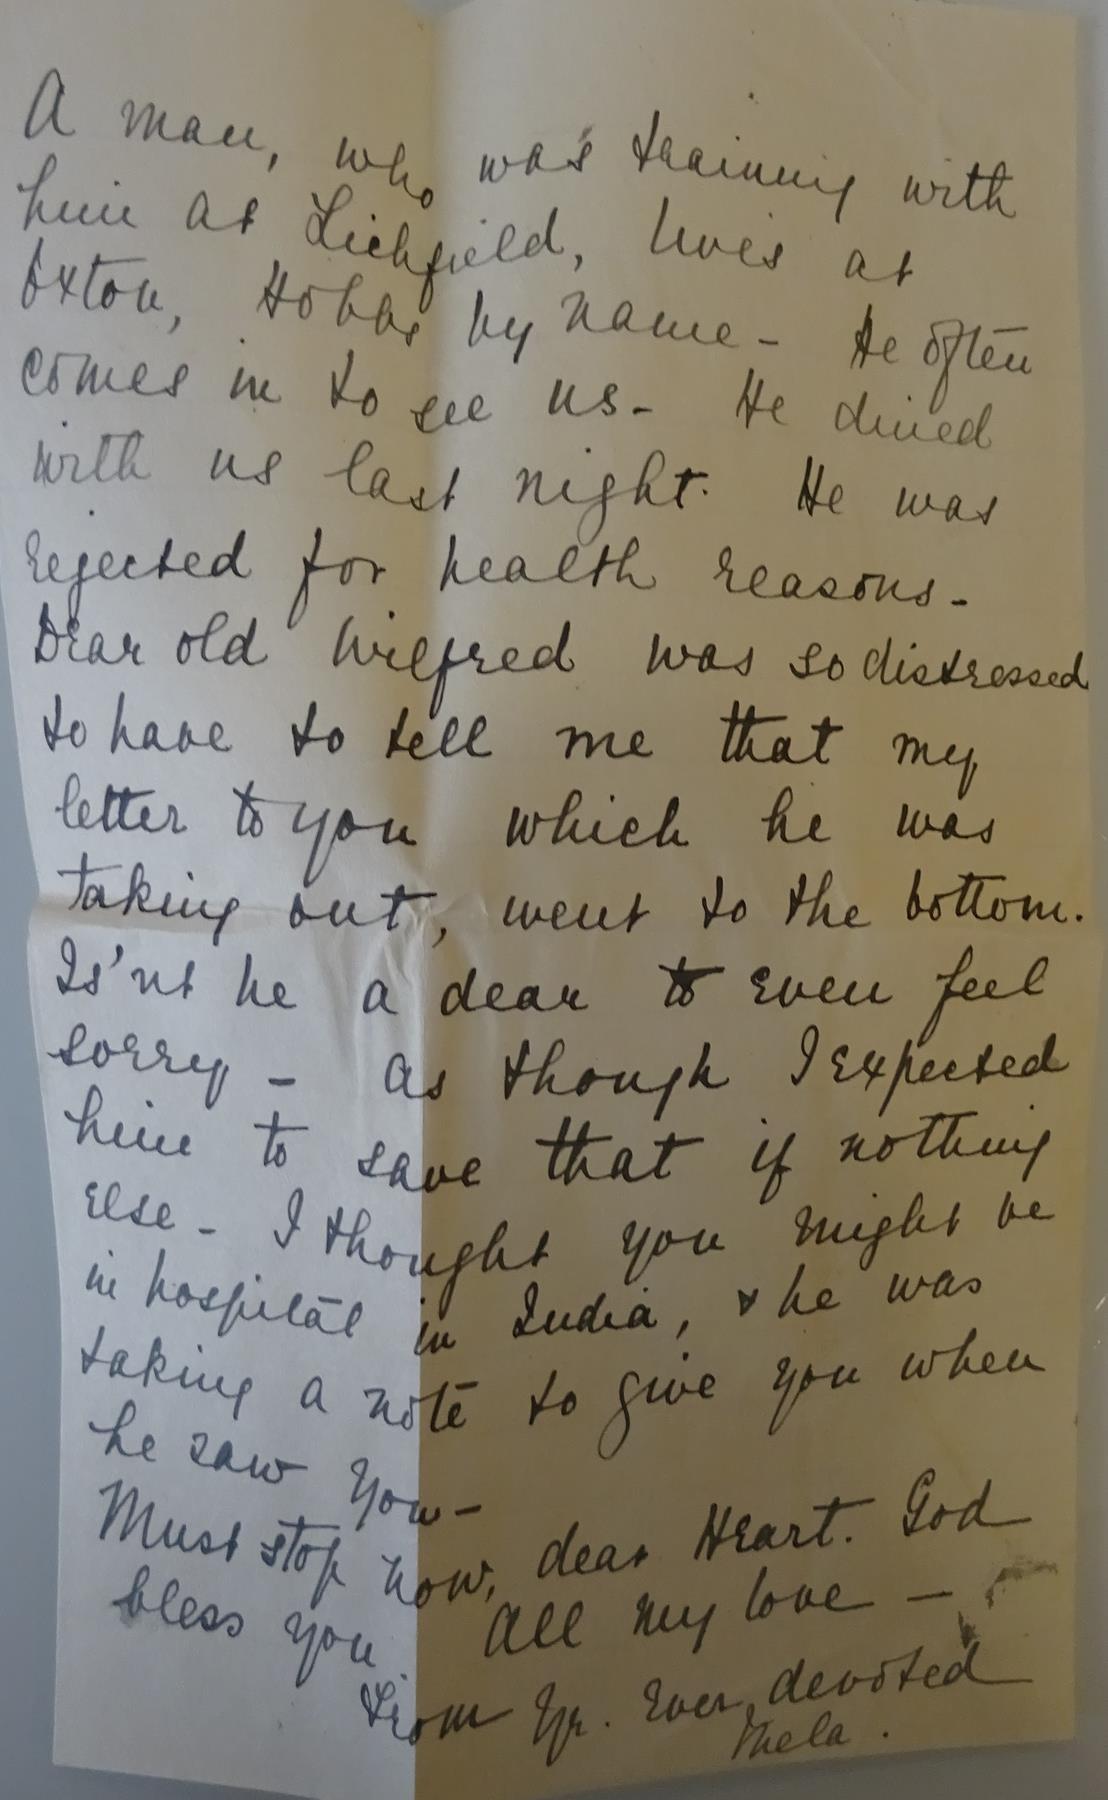 A man, who was training with
him at Lichfield, lives at
Oxton, Hobbs by name - He often
comes in to see us - He dined
with us last night. He was
rejected for health reasons -
Dear old Wilfred was so distressed
to have to tell me that my
letter to you which he was
taking out, went to the bottom.
Is'nt he a dear to even feel
sorry - as though I expected
him to save that if nothing
else - I thought you might be
in hospital in India, & he was
taking a note to give you when
he saw you -
Must stop now, dear Heart. God
bless you. All my love -
From Yr. Ever devoted
Thela.